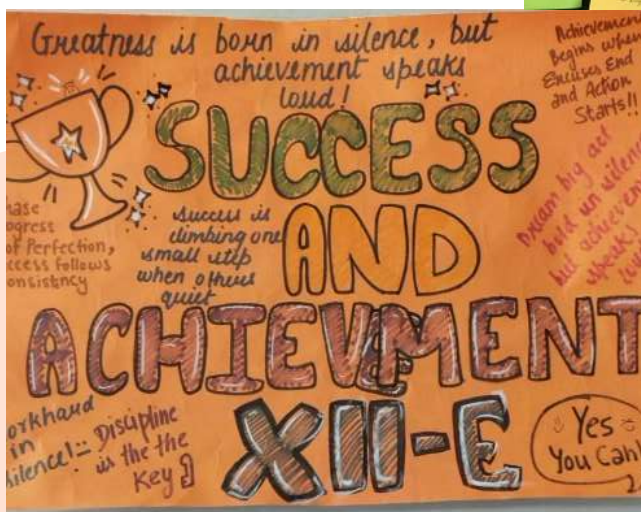 Greatness is born in silence, but
achievement speaks
loud!
Achievement
Begins when
Excuses End
and Action
Starts!!
SUCCESS
AND
ACHIEVMENT
XII-E
hase
ogress
of Perfection,
ccess follows
onsistency
success is
climbing one
small step
when others
quiet
Dream big act
but achieve
speaks
orkhard
in
silence!
Discipline
is the the
Key
Yes
You Can